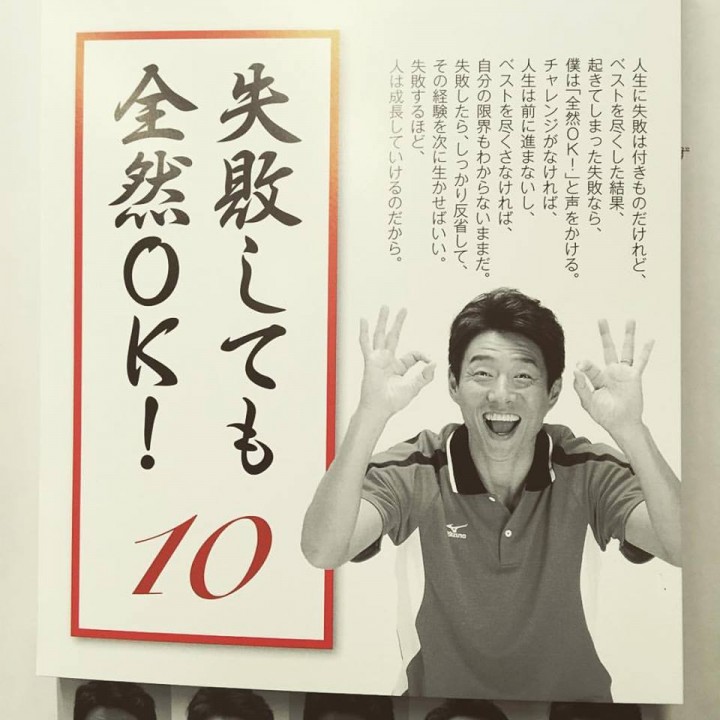 人生に失敗は付きものだけれど、
ベストを尽くした結果、
起きてしまった失敗なら、
僕は「全然OK！」と声をかける。
チャレンジがなければ、
人生は前に進まないし、
ベストを尽くさなければ、
自分の限界もわからないままだ。
失敗したら、しっかり反省して、
その経験を次に生かせばいい。
失敗するほど、
人は成長していけるのだから。
失敗しても
全然OK！
10
MIZUNO